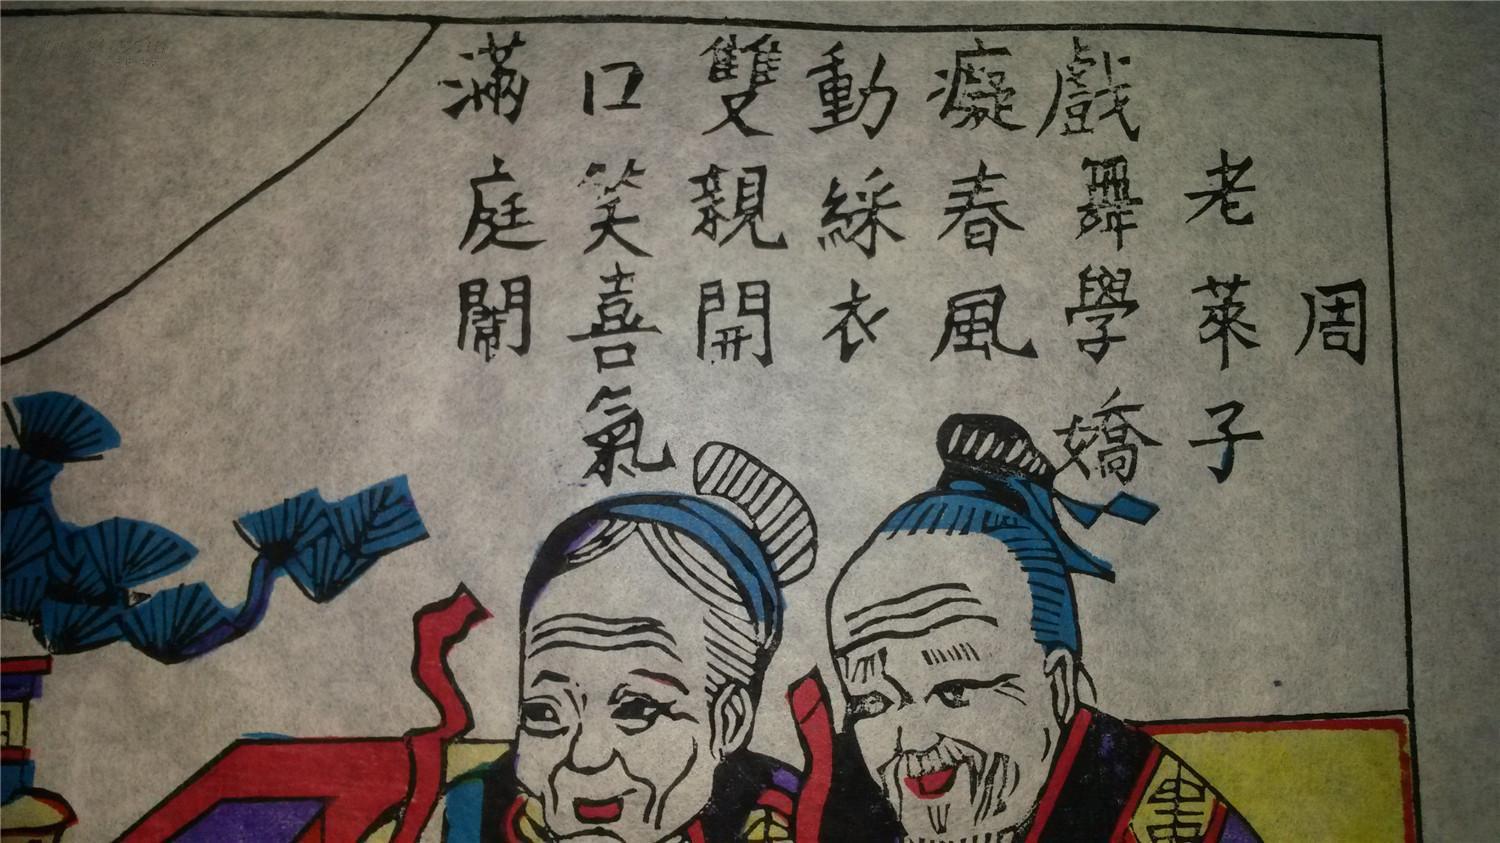 周
老萊子
戲舞學嬌
癡春風
動綵衣
雙親開
口笑喜氣
滿庭鬧